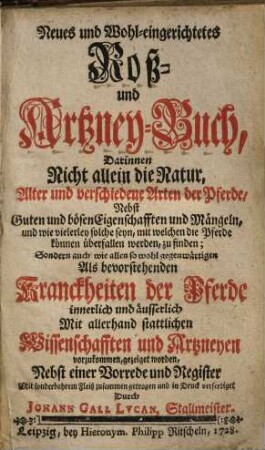 Neues und Wohl-eingerichtetes
Roß-
und
Artzney-Buch,
Darinnen
Nicht allein die Natur,
Alter und verschiedene Arten der Pferde/
Nebst
Guten und bösen Eigenschafften und Mängeln,
und wie vielerley solche seyn, mit welchen die Pferde
können überfallen werden, zu finden;
Sondern auch wie allen so wohl gegenwärtigen
Als bevorstehenden
Kranckheiten der Pferde
innerlich und äusserlich
Mit allerhand stattlichen
Wissenschafften und Artzneyen
vorzukommen, gezeiget worden,
Nebst einer Vorrede und Register
Mit sonderbahrem Fleiß zusammen getragen und in Druck verfertiget
Durch
JOHANN GALL LYCAN, Stallmeister.
Leipzig, bey Hieronym. Philipp Ritscheln, 1728.